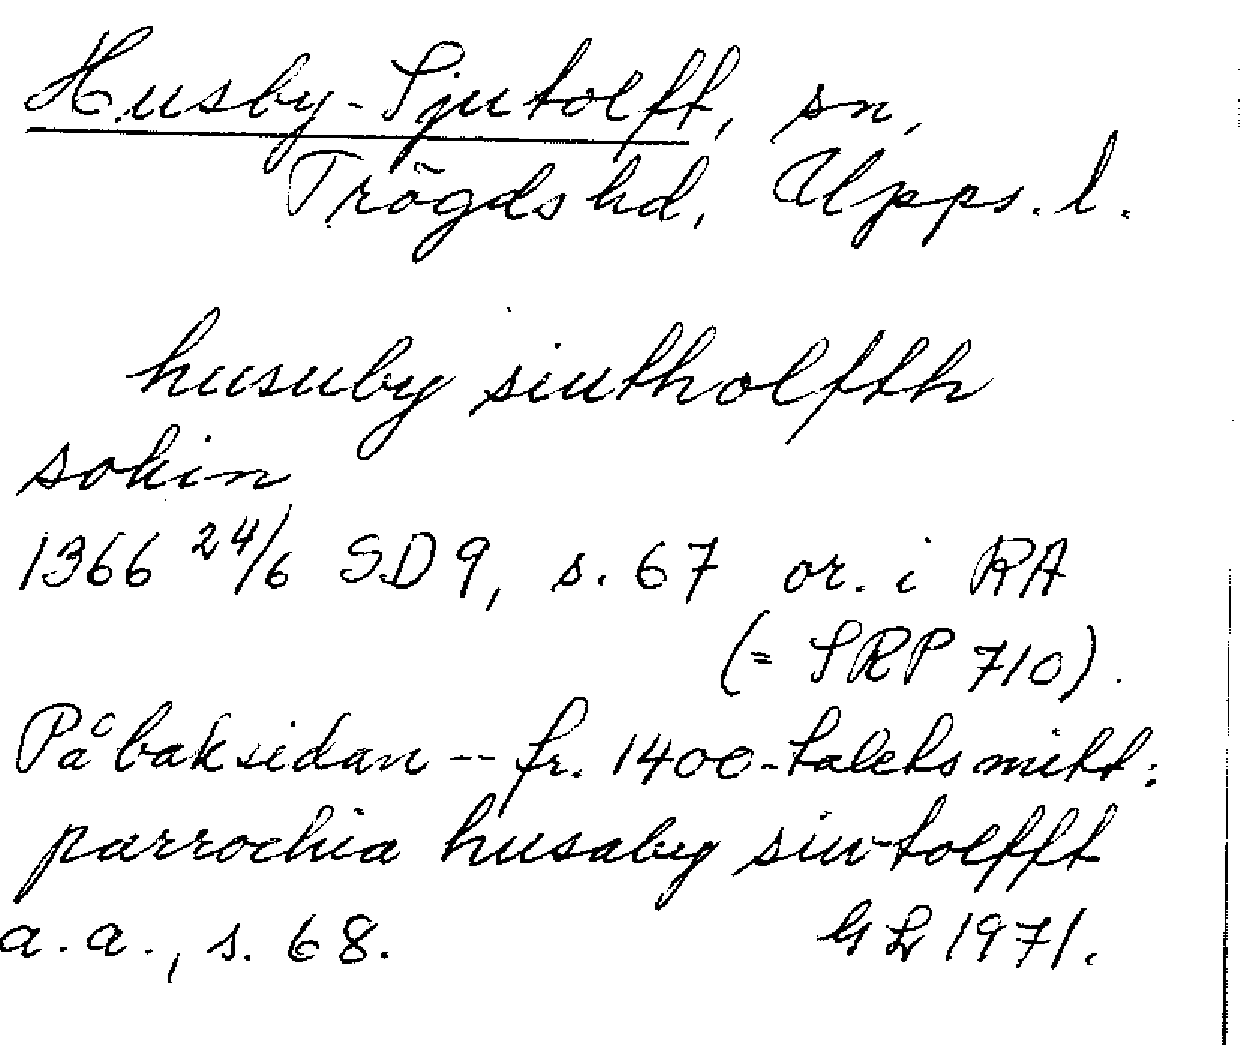 Husby-Sjutolft, sn,
Trögds hd, Upps. l.
husuby siutholfth
sokin
1366 24/6 SD 9, s. 67 or. i RA
(= SRP 710).
På baksidan -- fr. 1400-talets mitt:
parrochia husaby siwtolfft
a.a., s. 68. GL 1971.